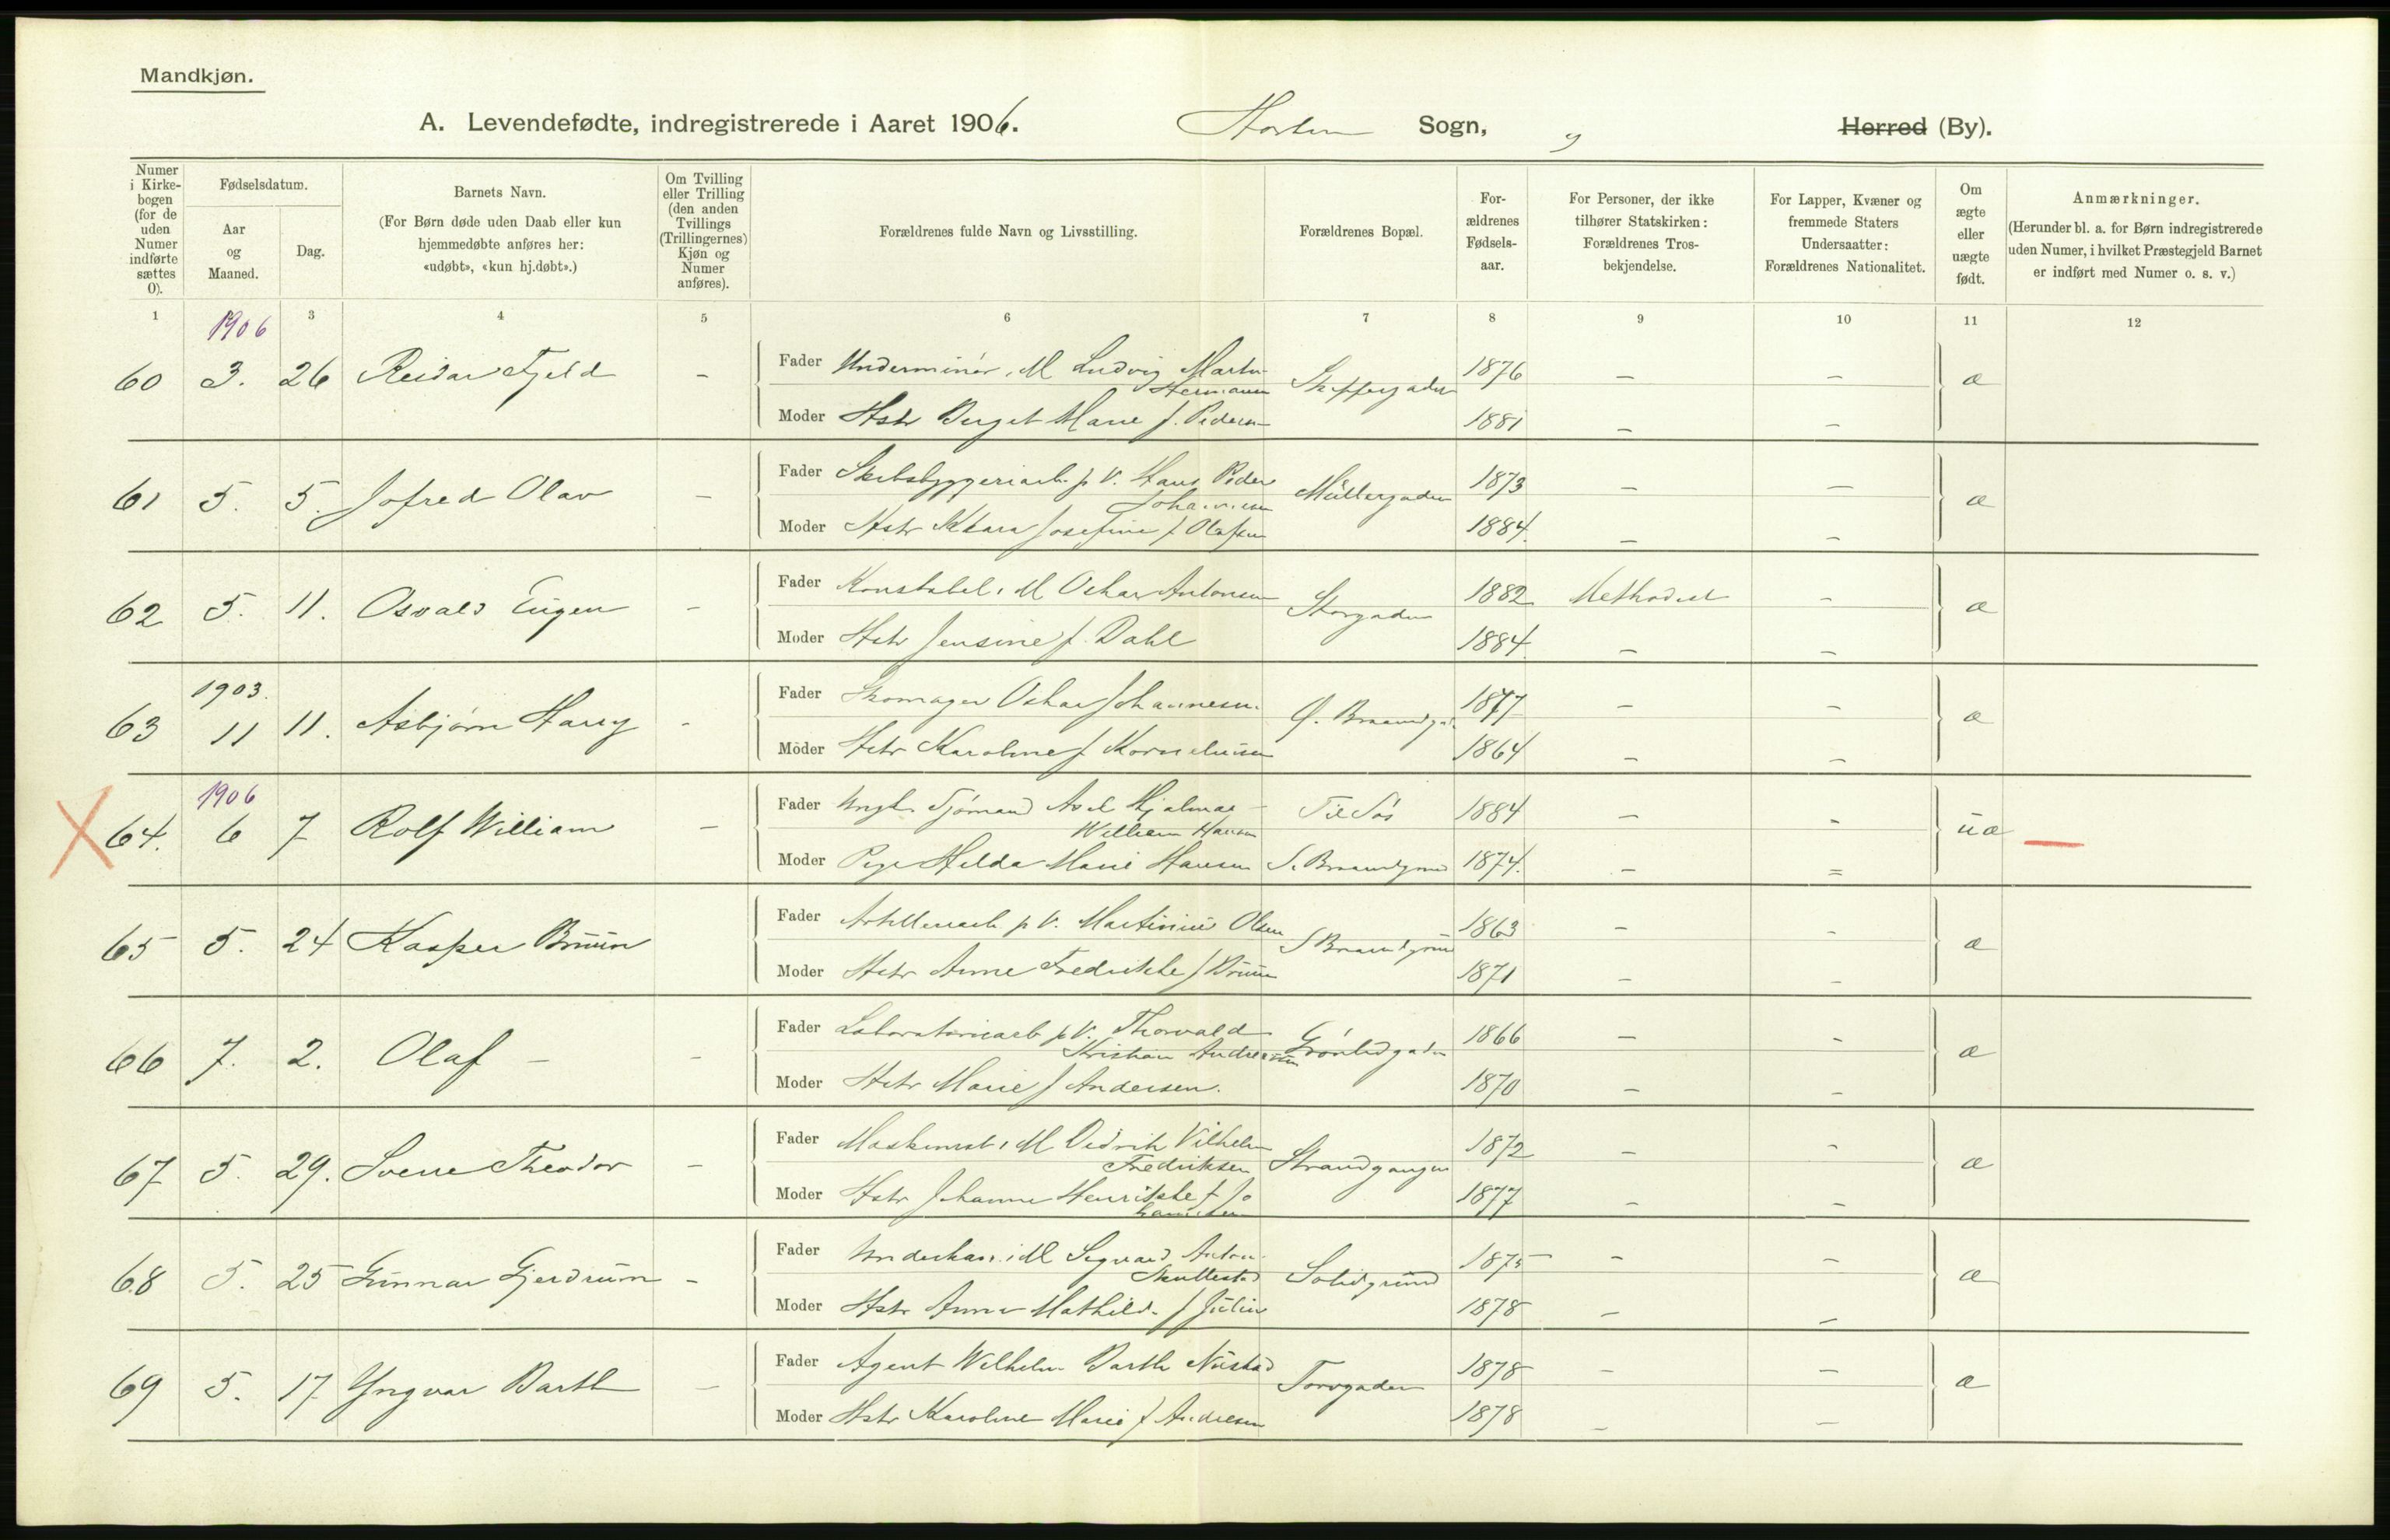 Mandkjøn.
A. Levendefødte, indregistrerede i Aaret 1906. Horten Sogn, Herred (By).
Numer i Kirkebogen (for de uden Numer indførte sættes 0).
Fødselsdatum.
Aar og Maaned.
Dag.
Barnets Navn.
(For Børn døde uden Daab eller kun hjemmedøbte anføres her: «udøbt», «kun hj.døbt».)
Om Tvilling eller Trilling (den anden Tvillings (Trillingernes) Kjøn og Numer anføres).
Forældrenes fulde Navn og Livsstilling.
Forældrenes Bopæl.
Forældrenes Fødselsaar.
For Personer, der ikke tilhører Statskirken: Forældrenes Trosbekjendelse.
For Lapper, Kvæner og fremmede Staters Undersaatter: Forældrenes Nationalitet.
Om ægte eller uægte født.
Anmærkninger.
(Herunder bl. a. for Børn indregistrerede uden Numer, i hvilket Præstegjeld Barnet er indført med Numer o. s. v.)
1 3 4 5 6 7 8 9 10 11 12
1906
60 3. 26 Reidar Fjeld – Fader Underminør. M Ludvig Martin 1876 – – æ
Hermansen
Moder Hstr Berget Marie f. Pedersen 1881 – –
61 5. 5. Jofred Olav – Fader Skibsbyggeriarb. p V. Hans Peder Müllergaden 1873 – – æ
Johannesen
Moder Hstr Klara Josefine f Olafsen 1884. – –
62 5. 11. Osvald Eugen – Fader Konstabel i M Oskar Antonsen Storgaden 1882 Methodist – æ
Moder Hstr Jensine f. Dahl 1884. – –
1903.
63 11 11. Asbjørn Harry – Fader Skomager Oskar Johannesen 1877 – – æ
Moder Hstr Karoline f Korneliussen 1864 – –
1906
64. 6 7 Rolf William – Fader Ungk. Sjømand Axel Hjalmar Til Søs 1884 – – uæ
William Hansen
Moder Pige Hilda Marie Hansen 1874. – =
65 5. 24 Kasper Bruun Fader p V. Martinius Olsen 1863 – – æ
Moder Hstr Anne Fredrikke f Bruun 1871 – –
66 7. 2. Olaf – – Fader Laboratoriearb p V. Thorvald Grønligaden 1866 – – æ
Kristian Andreassen
Moder Hstr Marie f Andersen. 1870 – –
67 5. 29. Sverre Theodor – Fader Maskinist i M Didrik Vilhelm Strandgangen 1872 – – æ
Fredriksen
Moder Hstr Johanne Henrikke f Jo 1877 – –
hansen
68 5. 25 Gunnar Gjerdrum – Fader i M Sigvard Anton 1875 – – æ
Moder Hstr Anna Mathilde f Julin 1878 – –
69 5. 17 Yngvar Barth – Fader Agent Wilhelm Barth Nustad Torvgaden 1878 – – æ
Moder Hstr Karoline Marie f Andresen 1878 – –